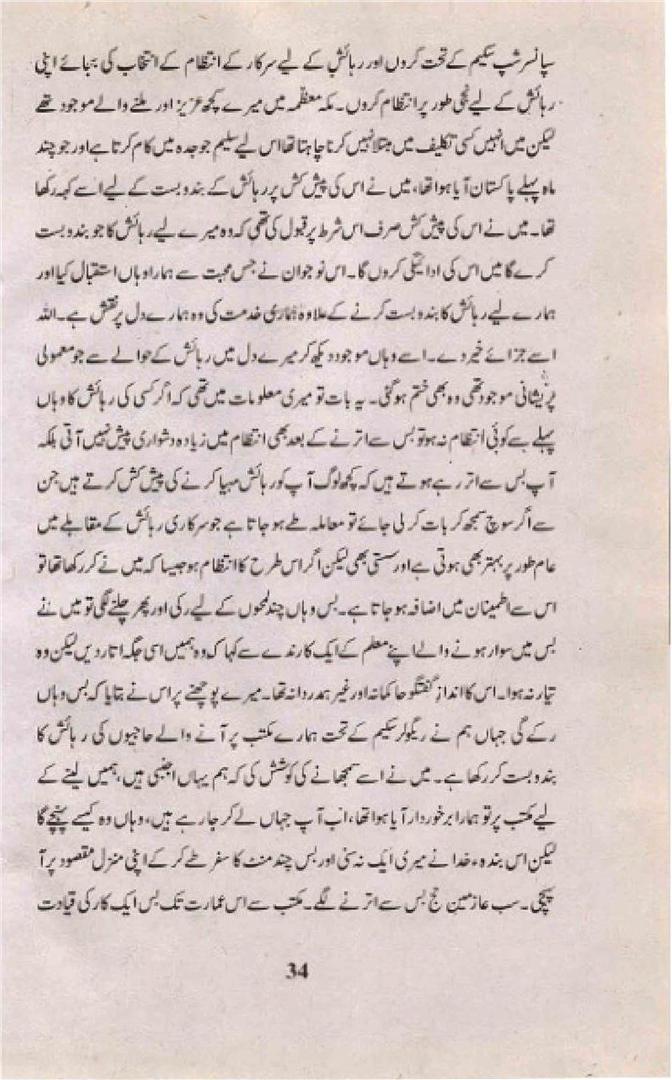 سپانسرشپ سکیم کے تحت کروں اور رہائش کے لیے سرکار کے انتظام کے انتخاب کی بجائے اپنی
رہائش کے لیے نجی طور پر انتظام کروں۔ مکہ معظمہ میں میرے کچھ عزیز اور ملنے والے موجود تھے
لیکن میں انہیں کسی تکلیف میں مبتلا نہیں کرنا چاہتا تھا اس لیے سلیم جو جدہ میں کام کرتا ہے اور جو چند
ماہ پہلے پاکستان آیا ہوا تھا، میں نے اس کی پیش کش پر رہائش کے بندوبست کے لیے اسے کہہ رکھا
تھا۔ میں نے اس کی پیش کش صرف اس شرط پر قبول کی تھی کہ وہ میرے لیے رہائش کا جو بندوبست
کرے گا میں اس کی ادائیگی کروں گا۔ اس نوجوان نے جس محبت سے ہمارا وہاں استقبال کیا اور
ہمارے لیے رہائش کا بندوبست کرنے کے علاوہ ہماری خدمت کی وہ ہمارے دل پر نقش ہے۔ اللہ
اسے جزائے خیر دے۔ اسے وہاں موجود دیکھ کر میرے دل میں رہائش کے حوالے سے جو معمولی
پریشانی موجود تھی وہ بھی ختم ہو گئی۔ یہ بات تو میری معلومات میں تھی کہ اگر کسی کی رہائش کا وہاں
پہلے سے کوئی انتظام نہ ہو تو بس سے اترنے کے بعد بھی انتظام میں زیادہ دشواری پیش نہیں آتی بلکہ
آپ بس سے اتر رہے ہوتے ہیں کہ کچھ لوگ آپ کو رہائش مہیا کرنے کی پیش کش کرتے ہیں جن
سے اگر سوچ سمجھ کر بات کر لی جائے تو معاملہ طے ہو جاتا ہے جو سرکاری رہائش کے مقابلے میں
عام طور پر بہتر بھی ہوتی ہے اور سستی بھی لیکن اگر اس طرح کا انتظام ہو جیسا کہ میں نے کر رکھا تھا تو
اس سے اطمینان میں اضافہ ہو جاتا ہے۔ بس وہاں چند لمحوں کے لیے رکی اور پھر چلنے لگی تو میں نے
بس میں سوار ہونے والے اپنے معلم کے ایک کارندے سے کہا کہ وہ ہمیں اسی جگہ اتار دیں لیکن وہ
تیار نہ ہوا۔ اس کا انداز گفتگو حاکمانہ اور غیر ہمدردانہ تھا۔ میرے پوچھنے پر اس نے بتایا کہ بس وہاں
رکے گی جہاں ہم نے ریگولر سکیم کے تحت ہمارے مکتب پر آنے والے حاجیوں کی رہائش کا
بندوبست کر رکھا ہے۔ میں نے اسے سمجھانے کی کوشش کی کہ ہم یہاں اجنبی ہیں، ہمیں لینے کے
لیے مکتب پر تو ہمارا برخوردار آیا ہوا تھا، اب آپ جہاں لے کر جا رہے ہیں، وہاں وہ کیسے پہنچے گا
لیکن اس بندہء خدا نے میری ایک نہ سنی اور بس چند منٹ کا سفر طے کر کے اپنی منزل مقصود پر آ
پہنچی۔ سب عازمین حج بس سے اترنے لگے۔ مکتب سے اس عمارت تک بس ایک کار کی قیادت
34